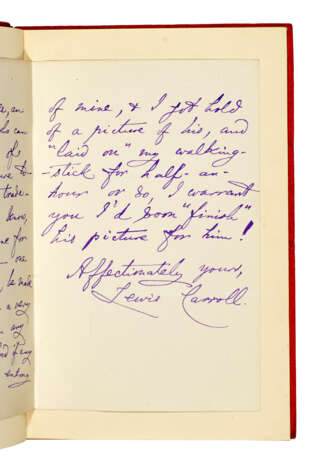 of mine, & I got hold
of a picture of his, and
"laid on" my walking-
stick for half-an-
hour or so, I warrant
you I'd soon "finish"
his picture for him!
Affectionately yours,
Lewis Carroll.
can
of
trade-
know,
for
one
be made
a very
any